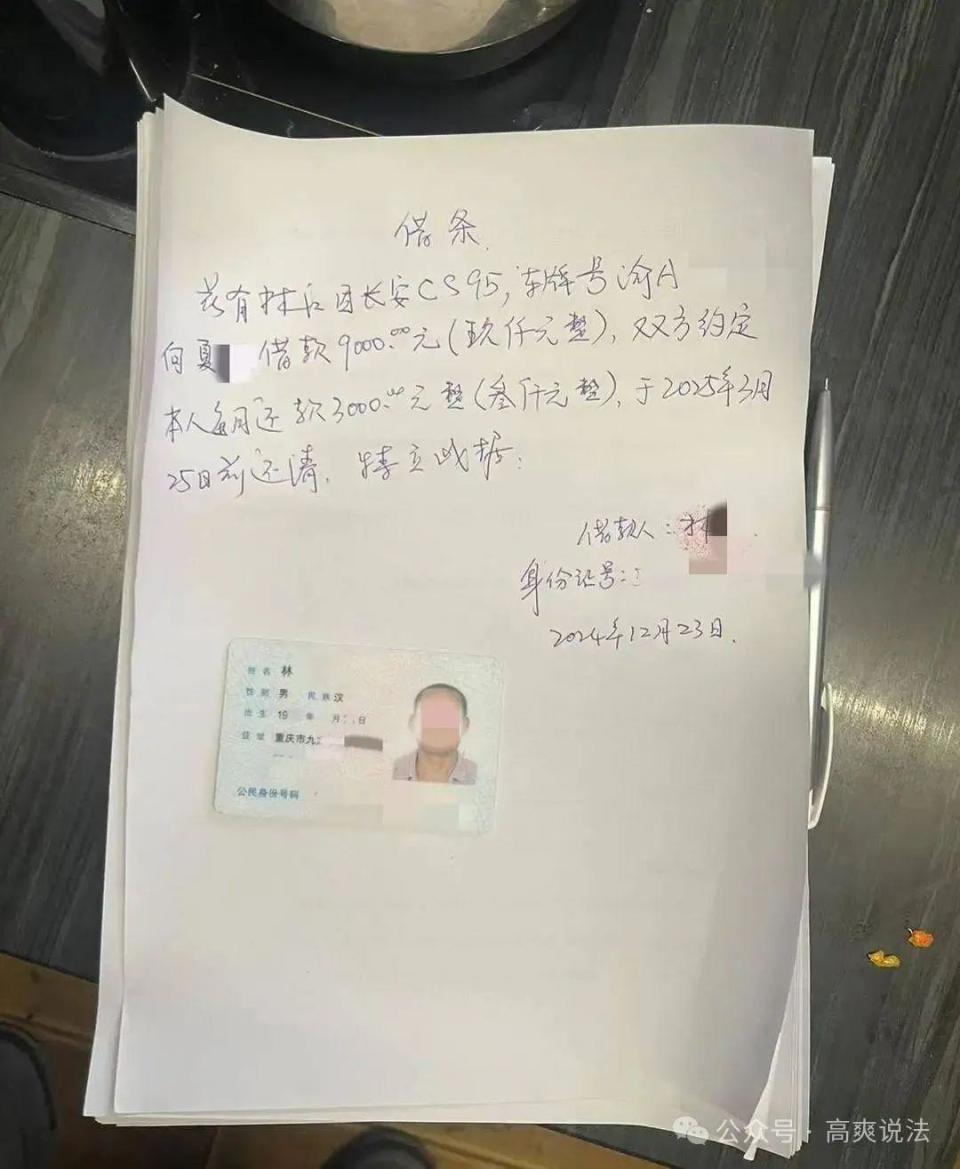 借条.
兹有林 因长安CS95,车牌号渝A
向夏 借款9000.00元(玖仟元整),双方约定
本人每月还款3000.00元整(叁仟元整),于2025年3月
25日前还清,特立此据.
借款人:林
身份证号:
2024年12月23日.
姓名 林
性别 男 民族 汉
出生 19 年 月 日
住址 重庆市九
公民身份号码
公众号·高爽说法